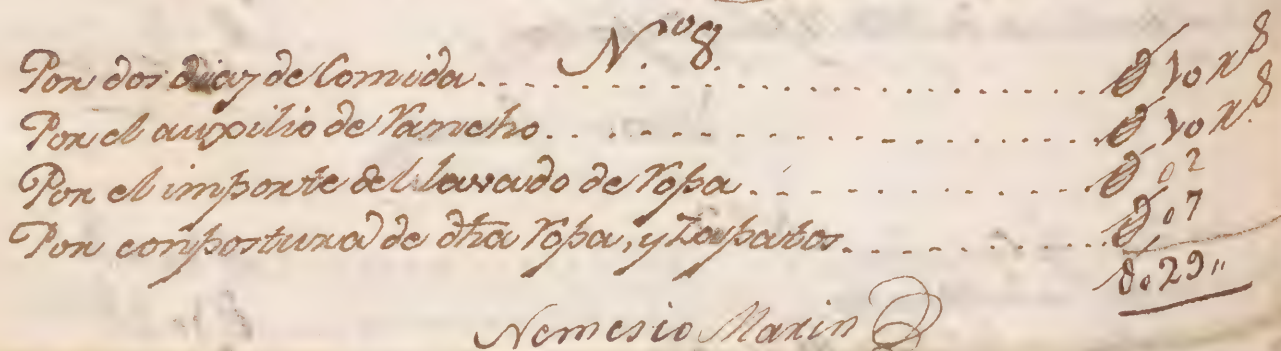 N.º 8.
Por dos dias de Comida . . . . . . . . . . . . . . . . . . . . . 10 r.s
Por el auxilio de rancho . . . . . . . . . . . . . . . . . . . . . 10 r.s
Por el importe del lavado de ropa . . . . . . . . . . . . . . . 02
Por conpostura de dha ropa, y Zapatos . . . . . . . . . . . . 07
029"
Nemesio Marin